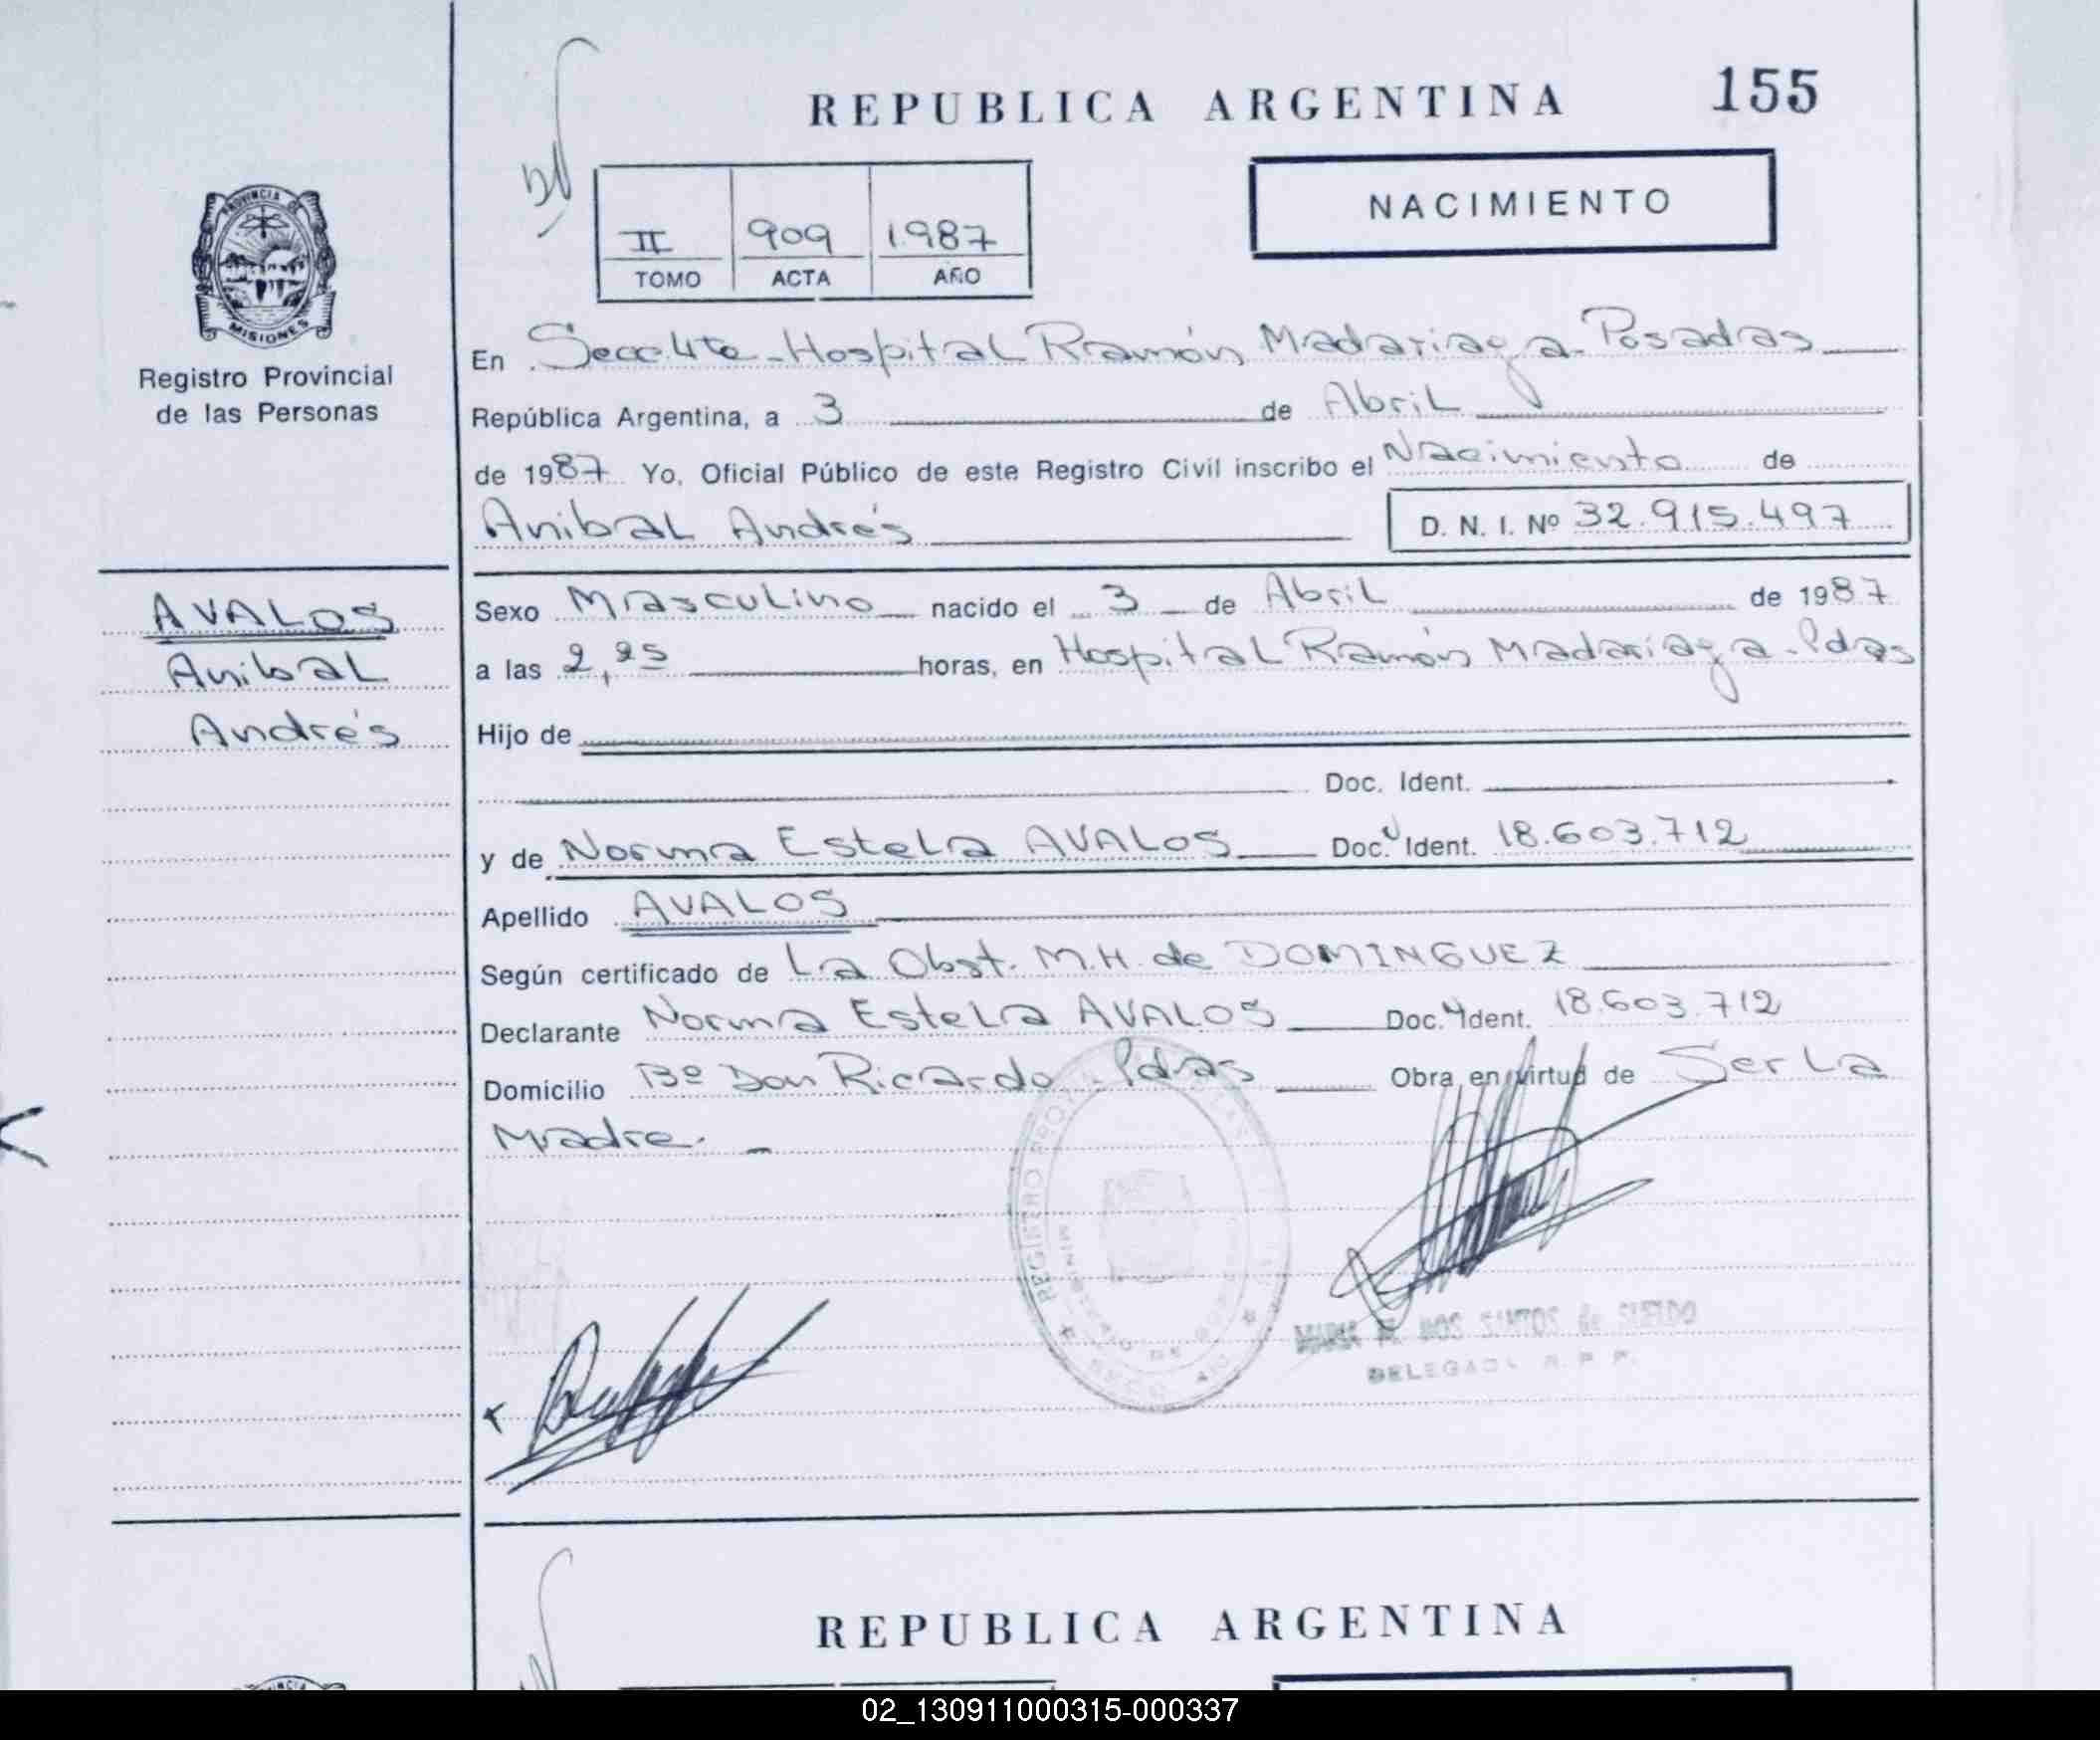 REPUBLICA ARGENTINA
155
NACIMIENTO
II 909 1987
TOMO ACTA AÑO
PROVINCIA DE
MISIONES
Registro Provincial
de las Personas
En Secc 4ta - Hospital Ramón Madariaga - Posadas
República Argentina, a 3 de Abril
de 1987 Yo, Oficial Público de este Registro Civil inscribo el Nacimiento de
Anibal Andrés D. N. I. Nº 32.915.497
AVALOS
Anibal
Andrés
Sexo Masculino nacido el 3 de Abril de 1987
a las 2,25 horas, en Hospital Ramón Madariaga - Pdas
Hijo de
Doc. Ident.
y de Norma Estela AVALOS Doc. Ident. 18.603.712
Apellido AVALOS
Según certificado de La Obst. M.H. de DOMINGUEZ
Declarante Norma Estela AVALOS Doc. Ident. 18.603.712
Domicilio Bº Don Ricardo - Pdas Obra en virtud de Ser La
Madre. -
REGISTRO
DOS SANTOS de SUELDO
DELEGADA R. P. P.
REPUBLICA ARGENTINA
02_130911000315-000337